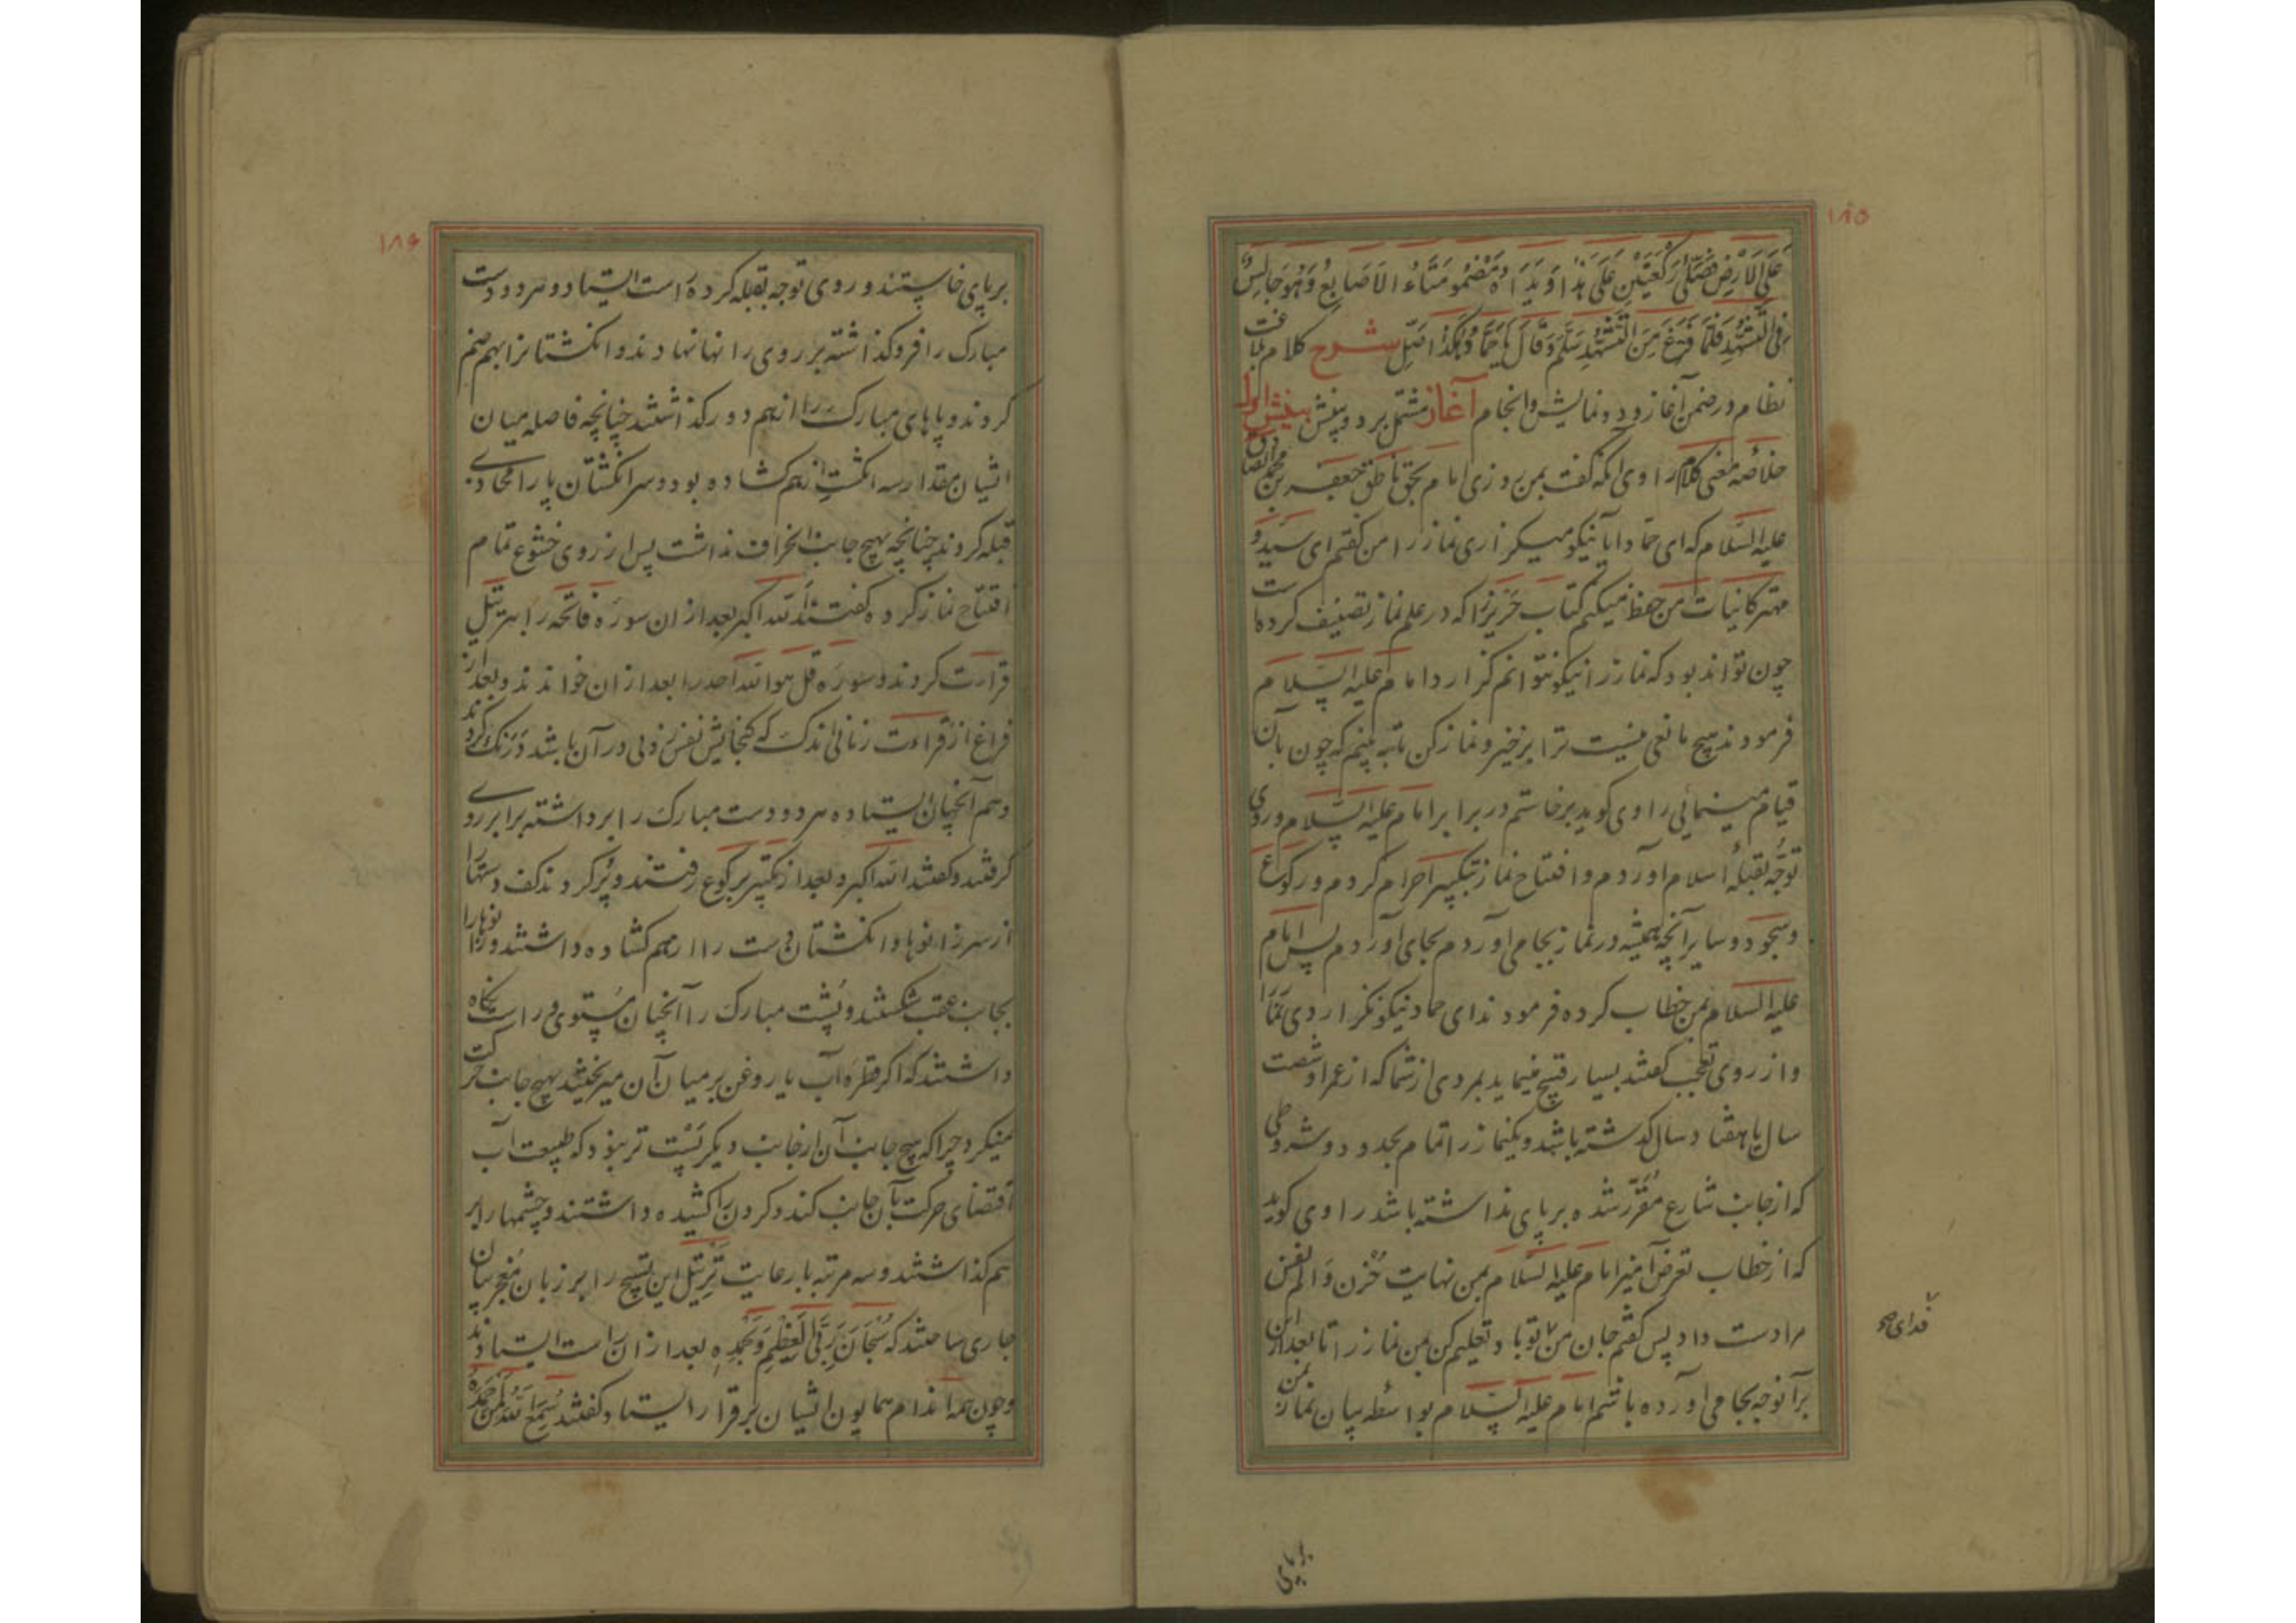 ۱۸۵
عَلَی الاَرْضِ فَصَلّٰی رَکْعَتَیْنِ عَلٰی هٰذا وَ یَدَاهُ مَضْمُومَتَاءُ الاَصَابِعِ وَهُوَ جَالِسٌ
فِی التَّشَهُّدِ فَلَمَّا فَرَغَ مِنَ التَّشَهُّدِ سَلَّمَ وَقَالَ یَا حَمَّادُ هٰکَذَا صَلِّ شرح کلام بلاغت
نظام در ضمن آغاز و دو نمایش و انجام آغاز مشتمل بر دو بینش بینش اول
خلاصه معنی کلام راوی آنکه گفت بمن روزی امام بحق ناطق جعفر بن محمد الصادق
علیه السلام که ای حماد ایا نیکو میگزاری نماز را من گفتم ای سید و
مهتر کاینات من حفظ میکنم کتاب حَریز را که در علم نماز تصنیف کرده است
چون تواند بود که نماز را نیکو نتوانم گزارد امام علیه السلام
فرمودند هیچ مانعی نیست ترا برخیز و نماز کن تا به بینم که چون بآن
قیام مینمائی راوی گوید برخاستم در برابر امام علیه السلام و روی
توجّه بقبلهٔ اسلام آوردم و افتتاح نماز بتکبیر احرام کردم و رکوع
و سجود و سایر آنچه همیشه در نماز بجا می آوردم بجای آوردم پس امام
علیه السلام بمن خطاب کرده فرمودند ای حماد نیکو نگزاردی نماز را
و از روی تعجب گفتند بسیار قبیح مینماید بمردی از شما که از عمر او شصت
سال یا هفتاد سال گذشته باشد و یکنماز را تمام بحدود و شروطی
که از جانب شارع مُقَرّر شده بر پای نداشته باشد راوی گوید
که از خطاب تعرض آمیز امام علیه السلام بمن نهایت حُزن و الم نفس
مرا دست داد پس گفتم جان من تو باد تعلیم کن بمن نماز را تا بعد از این
فدای صح
برآنوجه بجا می آورده باشم امام علیه السلام بواسطه بیان نماز بمن
بر پای
۱۸۶
بر پای خاستند و روی توجه بقبله کرده راست ایستادند و هر دو دست
مبارک را فرو گذاشته بر روی رانها نهادند و انگشتانرا بهم ضم
کردند و پاهای مبارک را از هم دور گذاشتند چنانچه فاصله میان
ایشان مقدار سه انگشت از هم کشاده بود و سر انگشتان پا را محاذی
قبله کردند چنانچه بهیچ جانب انحراف نداشت پس از روی خشوع تمام
افتتاح نماز کرده گفتند الله اکبر بعد از ان سوره فاتحه را بترتیل
قرائت کردند و سوره قل هو الله احد را بعد از ان خواندند و بعد از
فراغ از قراءت زمانی اندک که گنجایش نفس زدنی در آن باشد درنک کردند
و هم آنچنان ایستاده هر دو دست مبارک را برداشته برابر روی
گرفتند و گفتند الله اکبر و بعد از تکبیر برکوع رفتند و پُر کردند کف دستها را
از سر زانوها و انگشتان دست را از هم کشاده داشتند و زانوها را
بجانب عقب شکستند و پُشت مبارک را آنچنان مُستوی و راست نگاه
داشتند که اگر قطره آب یا روغن بر میان آن میریختند بهیچ جانب حرکت
نمیکرد چرا که هیچ جانب آن از جانب دیگر پَسْت تر نبود که طبیعت آب
اقتضای حرکت بآن جانب کند و گردن را کشیده داشتند و چشمها را بر
هم گذاشتند و سه مرتبه با رعایت تَرتیل این تسبیح را بر زبان مُعجز بیان
جاری ساختند که سُبْحَانَ رَبِّیَ الْعَظِیْمِ وَبِحَمْدِهِ بعد از ان راست ایستادند
و چون همه اندام همایون ایشان بر قرار ایستاد گفتند سَمِعَ اللهُ لِمَنْ حَمِدَهُ